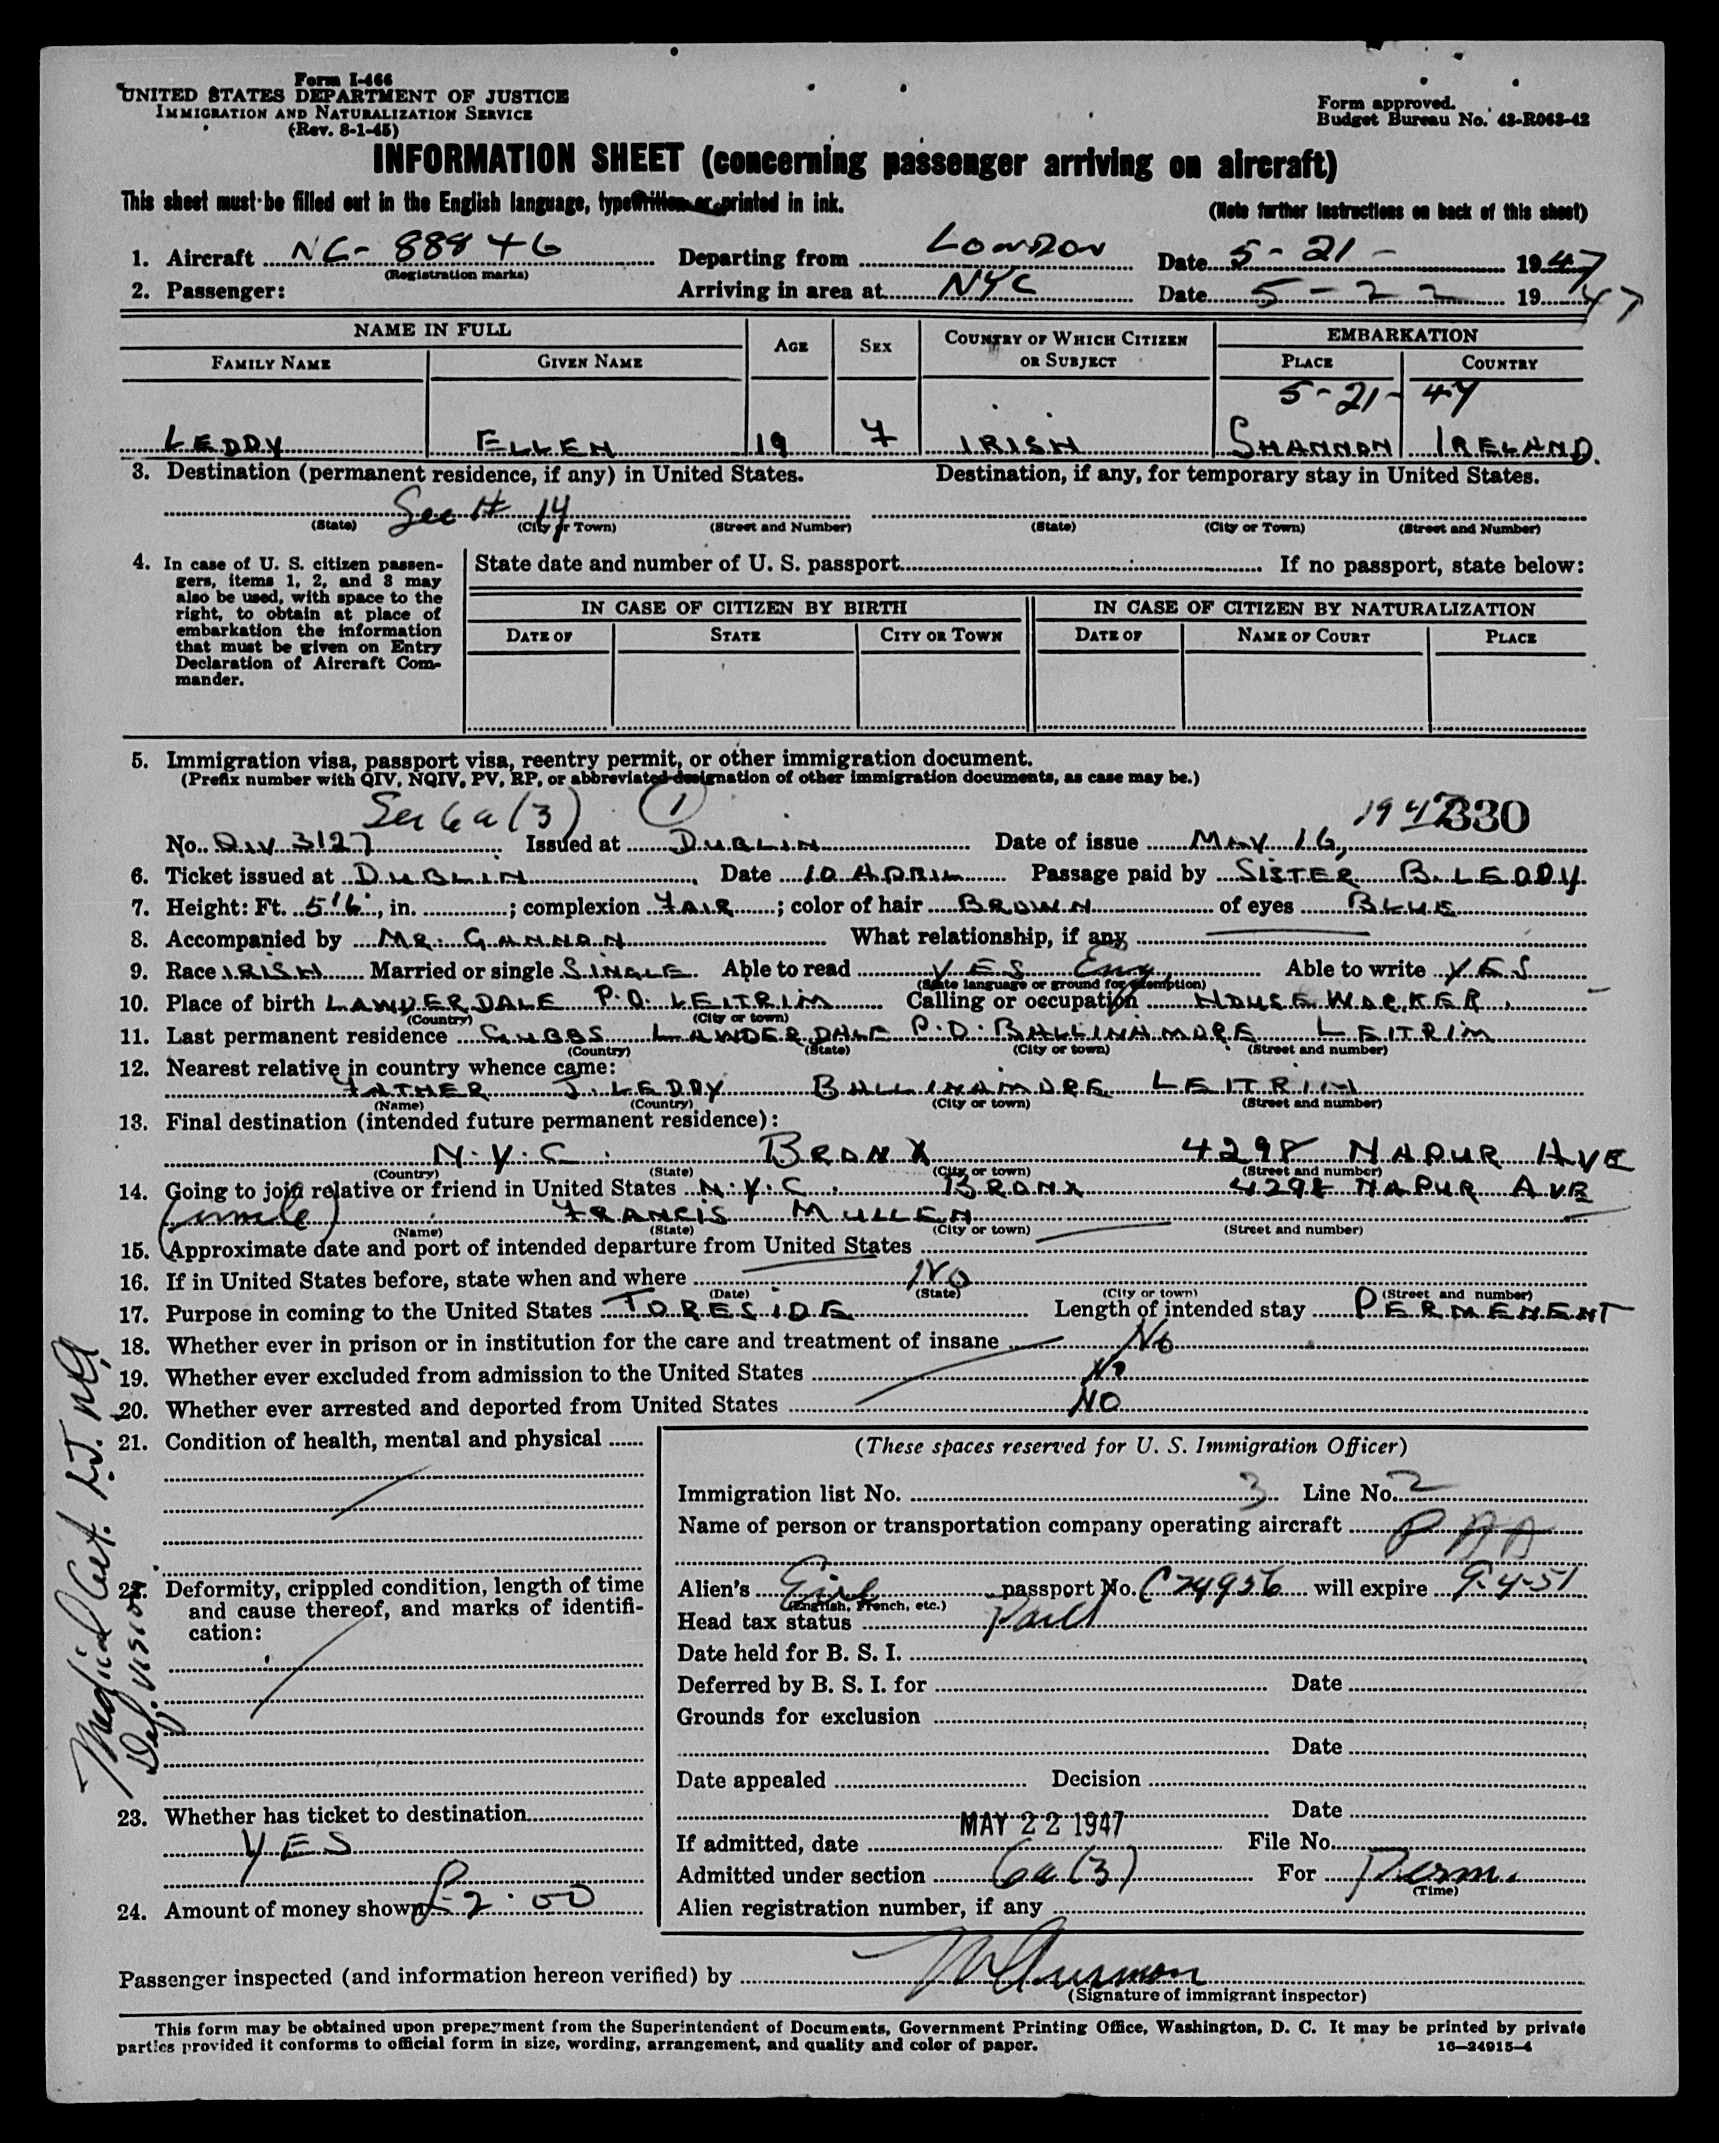 Form I-466
UNITED STATES DEPARTMENT OF JUSTICE
IMMIGRATION AND NATURALIZATION SERVICE
(Rev. 8-1-45)
Form approved.
Budget Bureau No. 43-R063-42
INFORMATION SHEET (concerning passenger arriving on aircraft)
This sheet must be filled out in the English language, typewritten or printed in ink.
(Note further instructions on back of this sheet)
1. Aircraft NC-88846 Departing from London Date 5-21- 1947
(Registration marks)
2. Passenger: Arriving in area at NYC Date 5-22 1947
NAME IN FULL AGE SEX COUNTRY OF WHICH CITIZEN OR SUBJECT EMBARKATION
FAMILY NAME GIVEN NAME PLACE COUNTRY
5-21-47
LEDDY ELLEN 19 F IRISH SHANNON IRELAND.
3. Destination (permanent residence, if any) in United States. Destination, if any, for temporary stay in United States.
See # 14
(State) (City or Town) (Street and Number) (State) (City or Town) (Street and Number)
4. In case of U. S. citizen passengers, items 1, 2, and 3 may also be used, with space to the right, to obtain at place of embarkation the information that must be given on Entry Declaration of Aircraft Commander.
State date and number of U. S. passport If no passport, state below:
IN CASE OF CITIZEN BY BIRTH IN CASE OF CITIZEN BY NATURALIZATION
DATE OF STATE CITY OR TOWN DATE OF NAME OF COURT PLACE
5. Immigration visa, passport visa, reentry permit, or other immigration document.
(Prefix number with QIV, NQIV, PV, RP, or abbreviated designation of other immigration documents, as case may be.)
Sec 6a(3) 1 1947 330
No. QIV 3127 Issued at DUBLIN Date of issue MAY 16,
6. Ticket issued at DUBLIN Date 10 APRIL Passage paid by SISTER B. LEDDY
7. Height: Ft. 5'6", in. ; complexion FAIR ; color of hair BROWN of eyes BLUE
8. Accompanied by MR. GANNON What relationship, if any
9. Race IRISH Married or single SINGLE Able to read YES Eng. Able to write YES
(State language or ground for exemption)
10. Place of birth LAWDERDALE P.O. LEITRIM Calling or occupation HOUSEWORKER
(Country) (City or town)
11. Last permanent residence GUBBS LAWDERDALE P.O. BALLINAMORE LEITRIM
(Country) (State) (City or town) (Street and number)
12. Nearest relative in country whence came:
FATHER J. LEDDY BALLINAMORE LEITRIM
(Name) (Country) (City or town) (Street and number)
13. Final destination (intended future permanent residence):
N.Y.C. BRONX 4298 NAPUR AVE
(Country) (State) (City or town) (Street and number)
14. Going to join relative or friend in United States N.Y.C. BRONX 4298 NAPUR AVE
(uncle) FRANCIS MULLEN
(Name) (State) (City or town) (Street and number)
15. Approximate date and port of intended departure from United States
16. If in United States before, state when and where NO
(Date) (State) (City or town) (Street and number)
17. Purpose in coming to the United States TO RESIDE Length of intended stay PERMENENT
18. Whether ever in prison or in institution for the care and treatment of insane No
19. Whether ever excluded from admission to the United States No
20. Whether ever arrested and deported from United States NO
21. Condition of health, mental and physical
22. Deformity, crippled condition, length of time and cause thereof, and marks of identification:
Medical Cert.
Def. vision.
23. Whether has ticket to destination
YES
24. Amount of money shown £2.00
(These spaces reserved for U. S. Immigration Officer)
Immigration list No. 3 Line No. 2
Name of person or transportation company operating aircraft PAA
Alien's Eire passport No. C74956 will expire 9-4-51
(English, French, etc.)
Head tax status Paid
Date held for B. S. I.
Deferred by B. S. I. for Date
Grounds for exclusion
Date
Date appealed Decision
Date
If admitted, date MAY 22 1947 File No.
Admitted under section 6a(3) For Perm.
(Time)
Alien registration number, if any
Passenger inspected (and information hereon verified) by
(Signature of immigrant inspector)
This form may be obtained upon prepayment from the Superintendent of Documents, Government Printing Office, Washington, D. C. It may be printed by private
parties provided it conforms to official form in size, wording, arrangement, and quality and color of paper.
16-24915-4